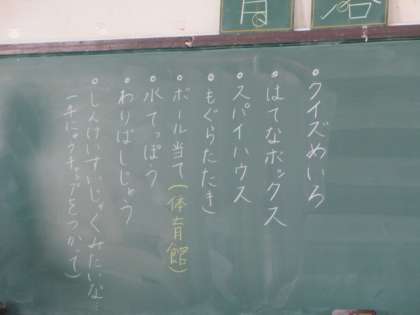 。クイズめいろ
。はてなボックス
。スパイハウス
。もぐらたたき
。ボール当て(体育館)
。水てっぽう
。わりばしじゅう
。しんけいすいじゃくみたいな…